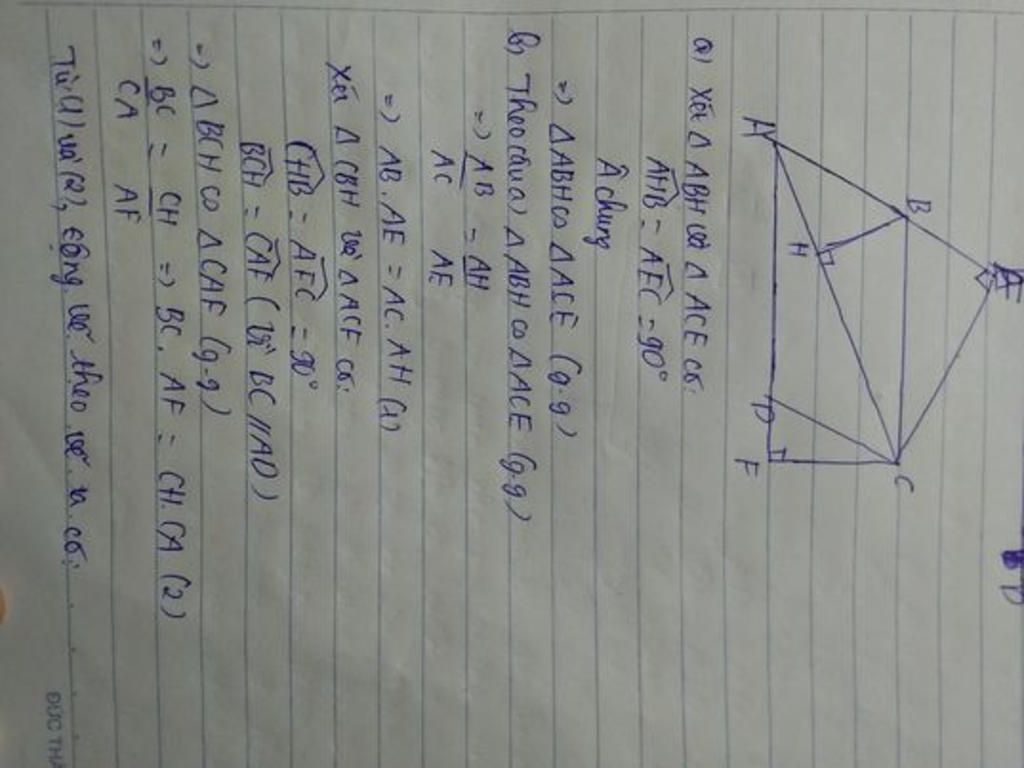 A
B
E
H
D
F
C
a) Xét Δ ABH và Δ ACE có:
AHB = AEC = 90°
 chung
=> Δ ABH ∽ Δ ACE (g.g)
b) Theo câu a) Δ ABH ∽ Δ ACE (g.g)
=> AB/AC = AH/AE
=> AB. AE = AC. AH (1)
Xét Δ CBH và Δ ACF có:
CHB = AFC = 90°
BCH = CAF (vì BC // AD)
=> Δ BCH ∽ Δ CAF (g-g)
=> BC/CA = CH/AF => BC. AF = CH. CA (2)
Từ (1) và (2), cộng vế theo vế ta có:
ĐỨC